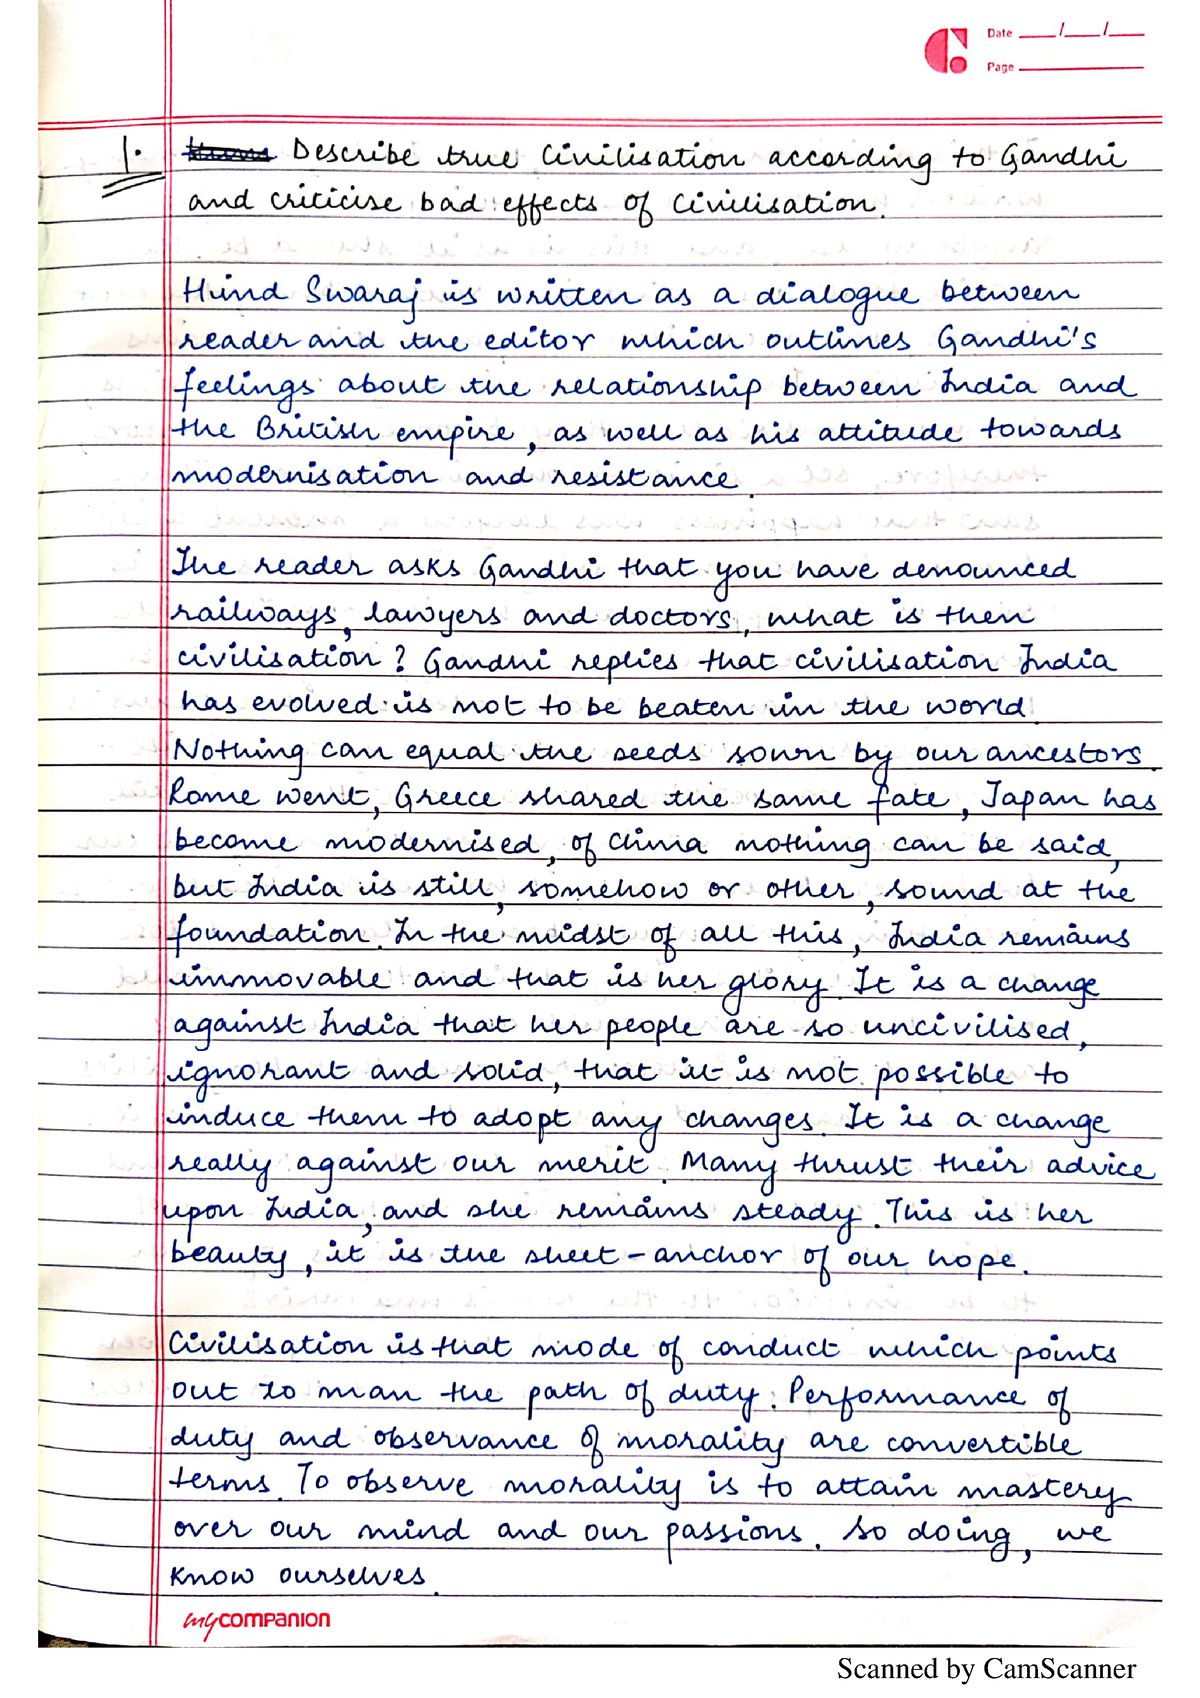 Date __/__/__
Page
1. Describe true Civilisation according to Gandhi
and criticise bad effects of Civilisation.
Hind Swaraj is written as a dialogue between
reader and the editor which outlines Gandhi's
feelings about the relationship between India and
the British empire, as well as his attitude towards
modernisation and resistance.
The reader asks Gandhi that you have denounced
railways, lawyers and doctors, what is then
civilisation? Gandhi replies that civilisation India
has evolved is not to be beaten in the world.
Nothing can equal the seeds sown by our ancestors.
Rome went, Greece shared the same fate, Japan has
become modernised, of China nothing can be said,
but India is still, somehow or other, sound at the
foundation. In the midst of all this, India remains
immovable and that is her glory. It is a change
against India that her people are so uncivilised,
ignorant and solid, that it is not possible to
induce them to adopt any changes. It is a change
really against our merit. Many thrust their advice
upon India, and she remains steady. This is her
beauty, it is the sheet-anchor of our hope.
Civilisation is that mode of conduct which points
out to man the path of duty. Performance of
duty and observance of morality are convertible
terms. To observe morality is to attain mastery
over our mind and our passions. So doing, we
know ourselves.
mycompanion
Scanned by CamScanner